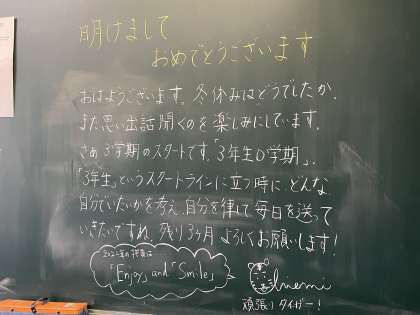 明けまして
おめでとうございます
おはようございます。冬休みはどうでしたか。
また思い出話聞くのを楽しみにしています。
さぁ3学期のスタートです。「3年生0学期」。
「3年生」というスタートラインに立つ時に、どんな
自分でいたいかを考え、自分を律して毎日を送って
いきたいですね。残り3ヶ月 よろしくお願いします！
「Enjoy」and「Smile」
頑張りタイガー！